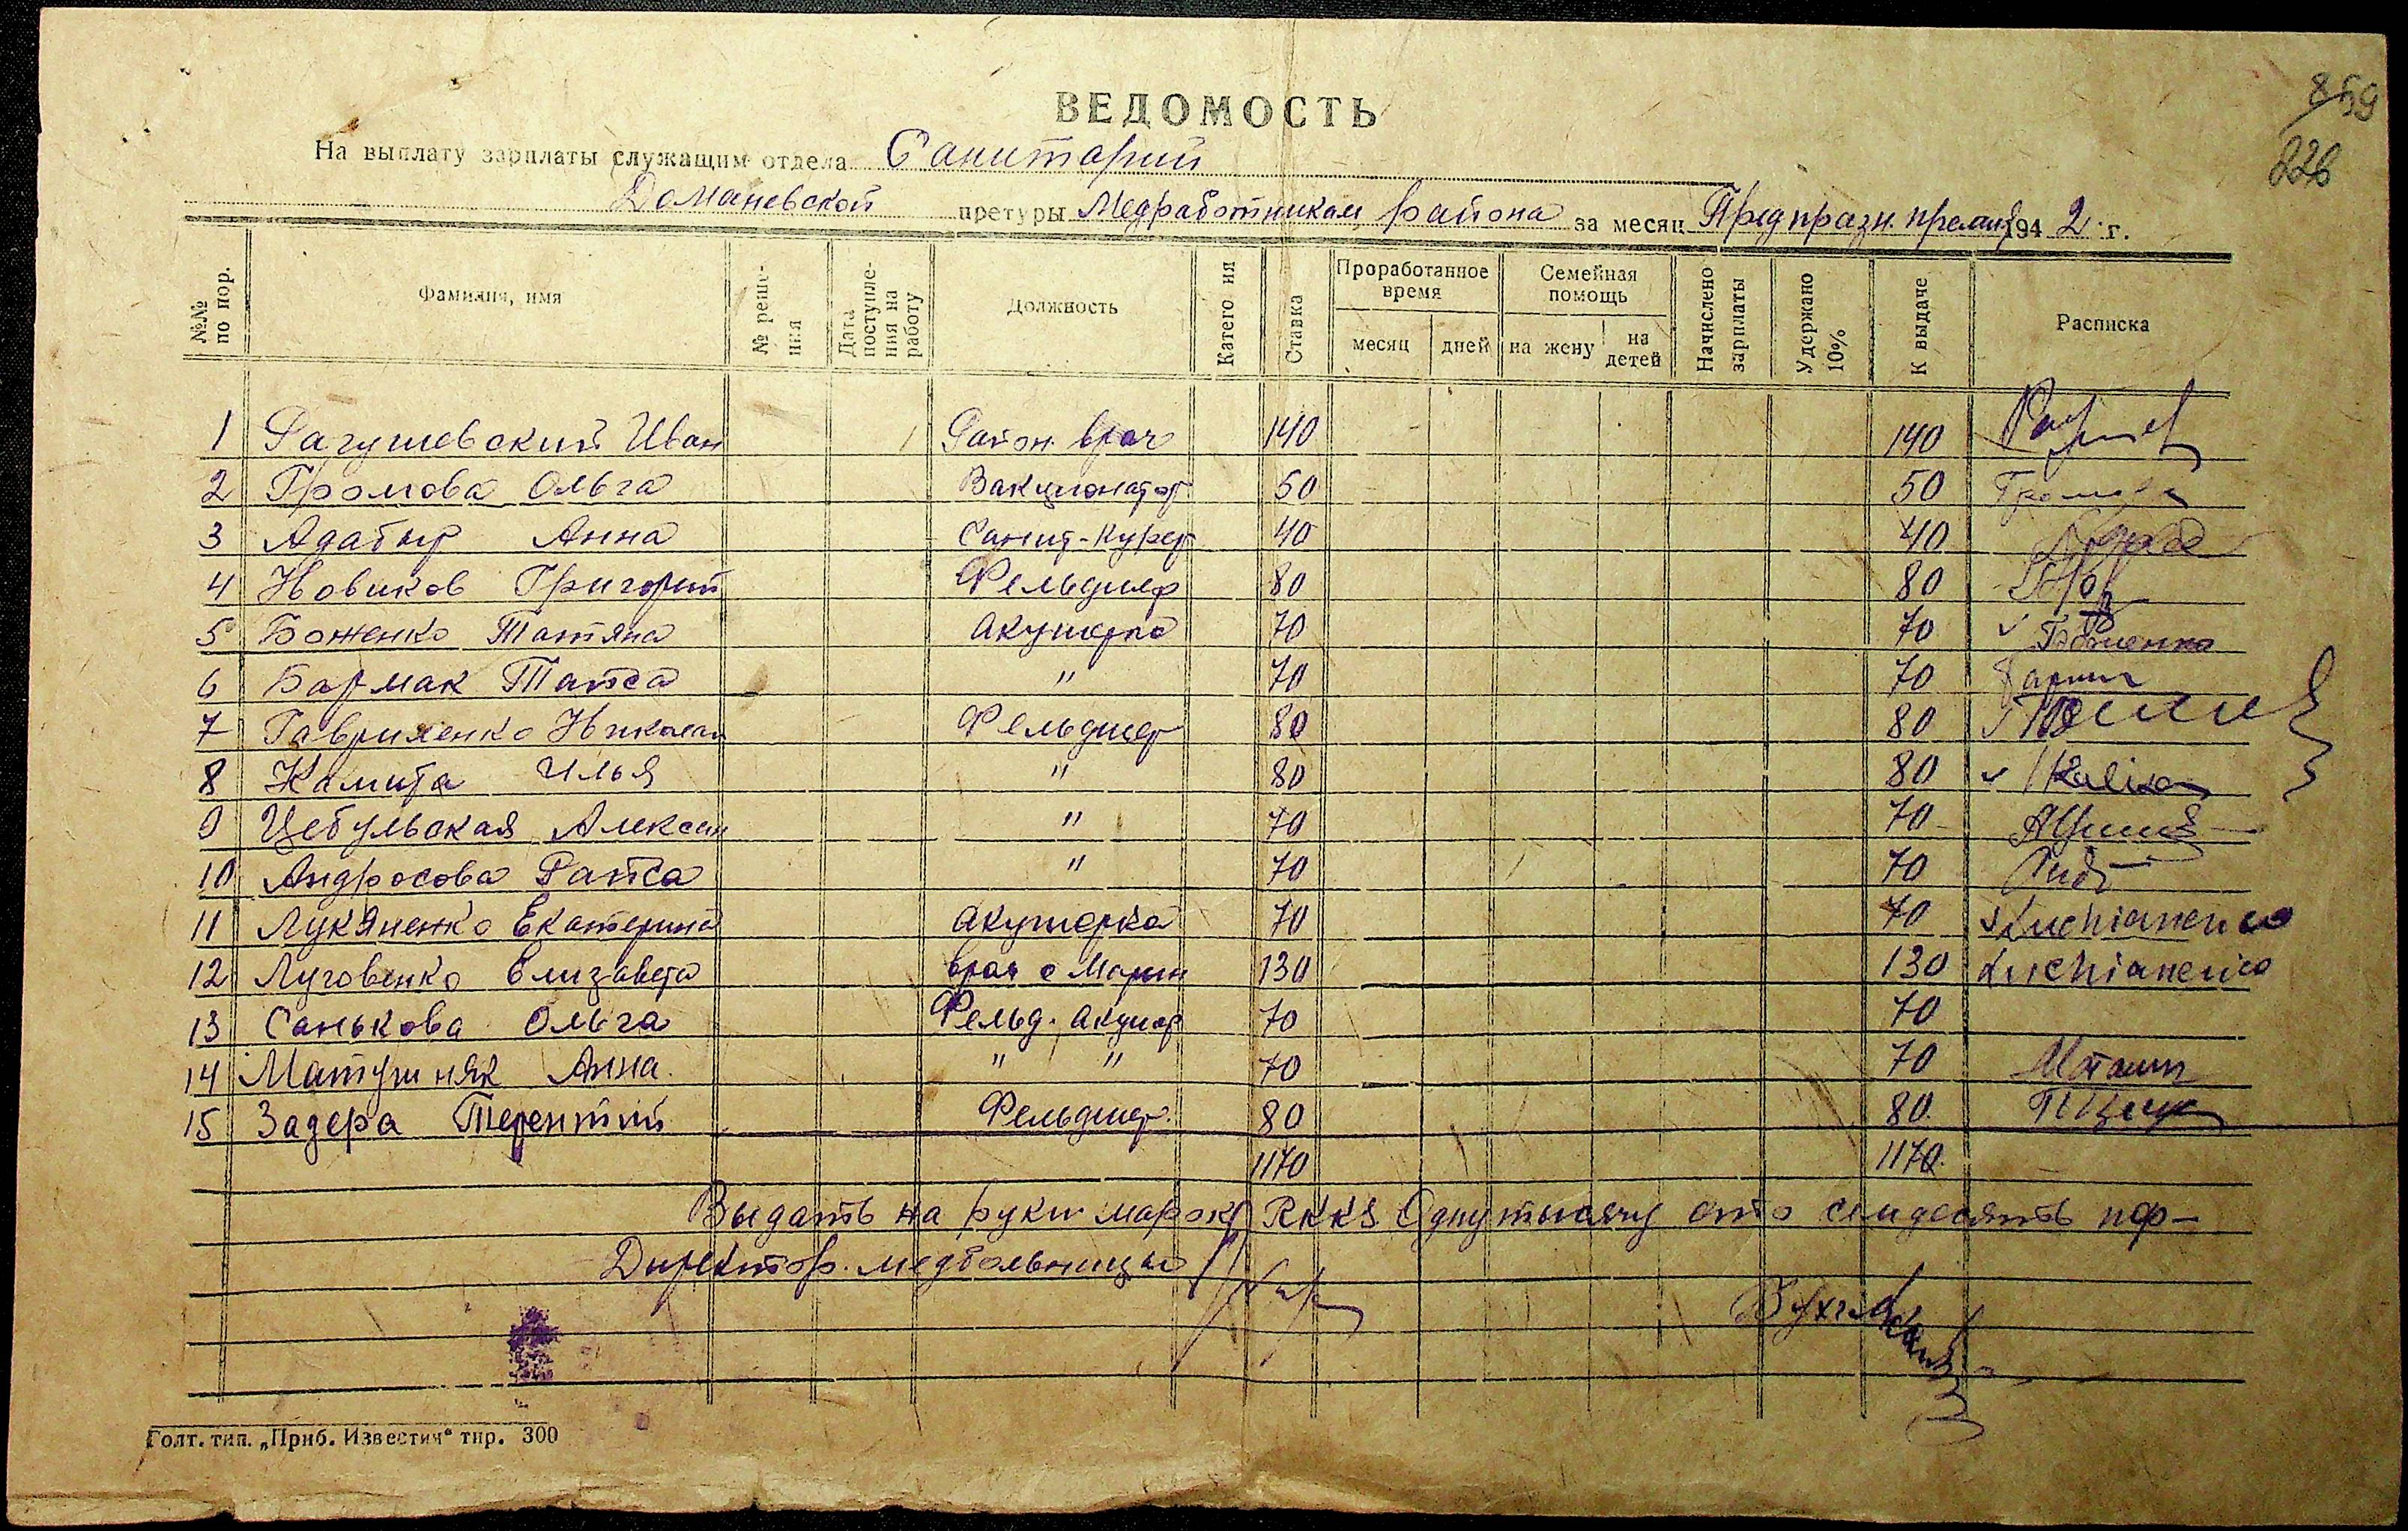 859
226
ВЕДОМОСТЬ
На выплату зарплаты служащим отдела Санитарий
Доманевской претуры Медработникам района за месяц Предпразн. премия 1942 г.
№№ по пор. Фамилия, имя № реше-ния Дата поступле-ния на работу Должность Катего ия Ставка Проработанное время месяц дней Семейная помощь на жену на детей Начислено зарплаты Удержано 10% К выдаче Расписка
1 Рагушевский Иван Район врач 140 140
2 Громова Ольга Вакцинатор 50 50 Громова
3 Адабыр Анна Санит-Курер 40 40
4 Новиков Григорий Фельдшер 80 80
5 Боженко Татяна Акушерка 70 70 Боженко
6 Бармак Таиса " 70 70
7 Гавриленко Николай Фельдшер 80 80
8 Калита Илья " 80 80
9 Цебульская Алексан " 70 70
10 Андросова Раиса " 70 70
11 Лукяненко Екатерина Акушерка 70 70 Luchianenco
12 Луговенко Елизавета врач с Марин 130 130 Luchianenco
13 Санькова Ольга Фельд. акушер 70 70
14 Матушняк Анна. " " 70 70
15 Задера Терентий Фельдшер. 80 80.
1170 1170.
Выдать на руки марок RKKS Одну тысячу сто семдесять
Директор. медбольницы
Бухг.
Голт. тип. „Приб. Известия“ тир. 300